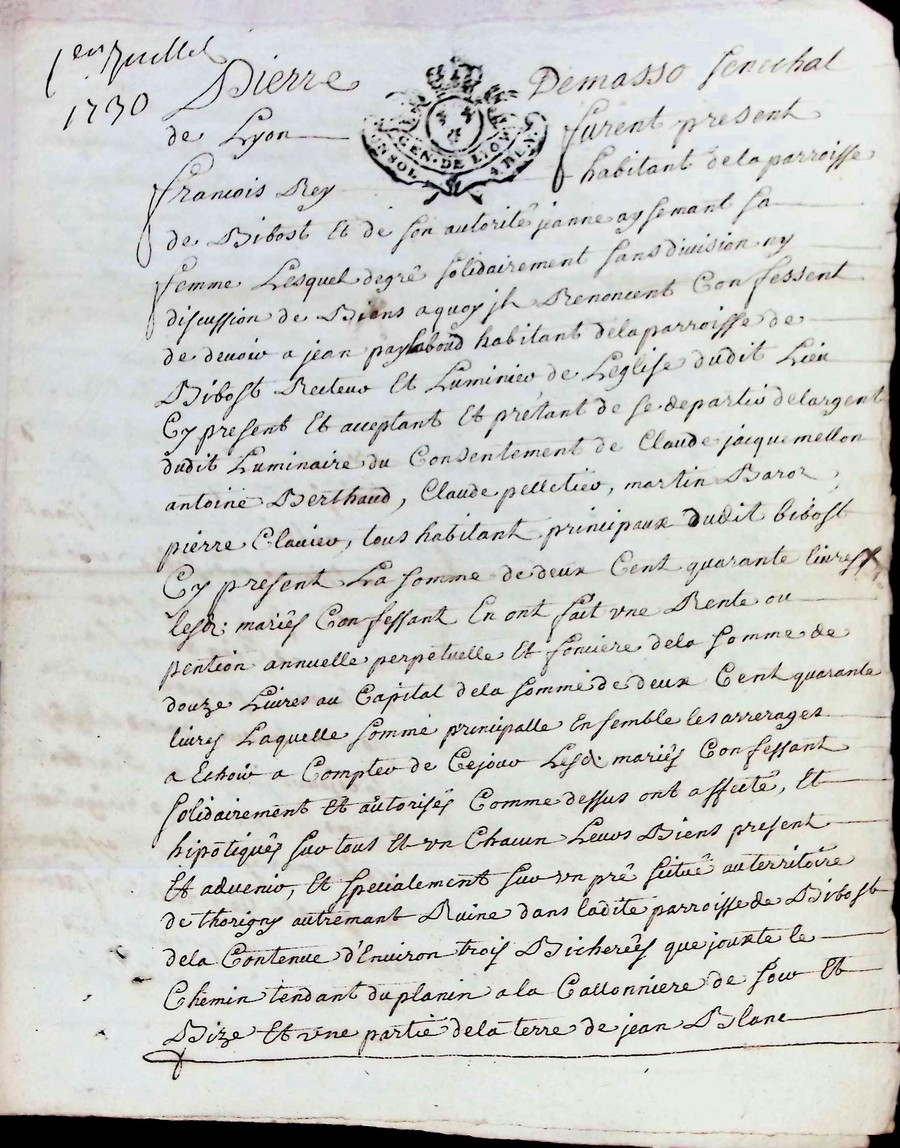 1er Juillet
1730
Pierre Demasso senechal
GEN. DE LYON
UN SOL 4 DEN.
de Lyon furent present
francois Rey habitant dela parroisse
de Bibost Et de son autorité jeanne aysemant sa
femme Lesquel degré solidairement sans division ny
discussion de Biens a quoy jls Renoncent Confessent
de devoir a jean habitant dela parroisse de
Bibost Recteur Et Luminier de Leglise dudit Lieu
Cy present Et acceptant Et prétant de se departir delargent
dudit Luminaire du Consentement de Claude jacquemellon
antoine Berthaud, Claude pelletier, martin Baroz,
pierre Clavier, tous habitant principaux dudit bibost
Cy present La somme de deux Cent quarante livres
lesd: mariés Confessant En ont fait vne Rente ou
pention annuelle perpetuelle Et fonciere dela somme de
douze Livres au Capital dela somme de deux Cent quarante
livres Laquelle somme principalle Ensemble les arrerages
a Echoir a Compter de Cejour Lesd: mariés Confessant
solidairement Et autorisés Comme dessus ont affecté, Et
hipotiqués sur tous Et vn Chacun Leurs Biens present
Et advenir, Et specialement sur vn pré situé au territoire
de thorigny autremant Ruine dans ladite parroisse de Bibost
dela Contenue d'Environ trois Bicherées que jouxte le
Chemin tendant du planin a la Callonniere de sour Et
Bize Et vne partie dela terre de jean Blanc